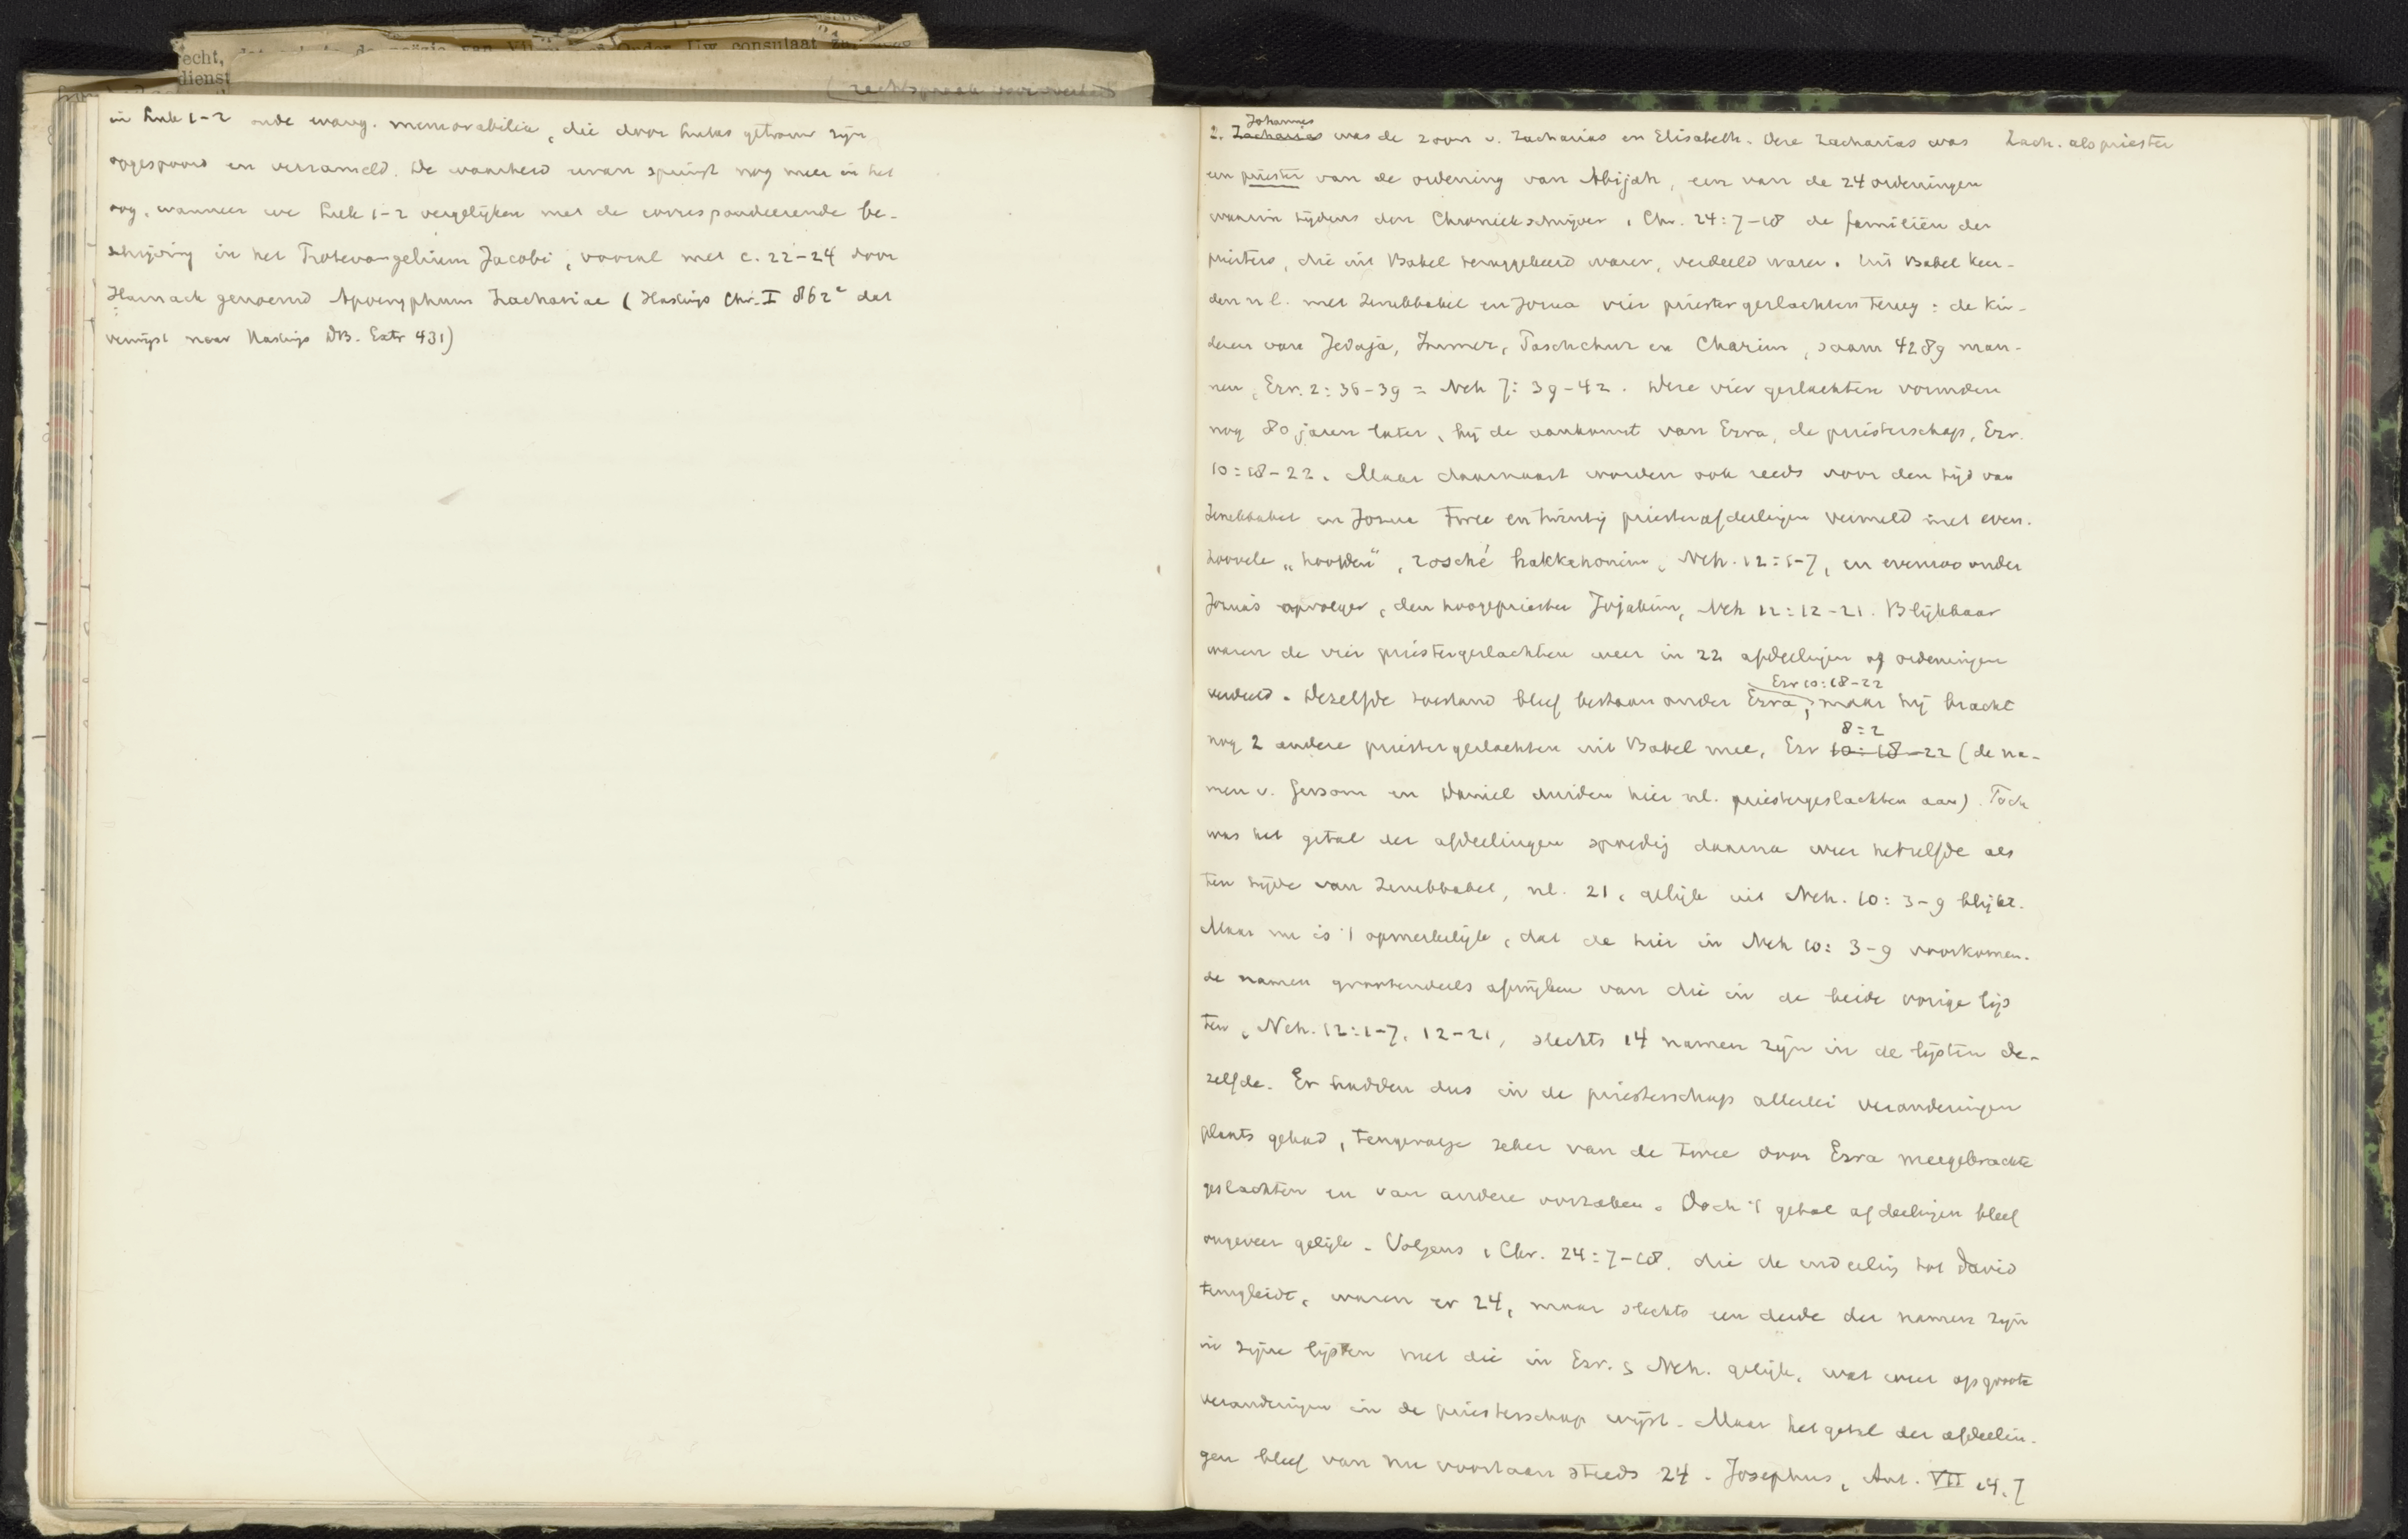 echt,
dienst
consulaat
in Luk 1-2 oude evang. memorabilia, die door Lukas getrouw zijn
opgespoord en verzameld. De waarheid ervan springt nog meer in het
oog, wanneer we Luk 1-2 vergelijken met de correspondeerende be-
schrijving in het Protevangelium Jacobi, vooral met c. 22-24 door
Harnack genoemd Apocryphum Zachariae (Hastings Chr. I 862ᵃ dat
verwijst naar Hastings DB. Extr 431)
Johannes
2. Zacharias was de zoon v. Zacharias en Elisabeth. Deze Zacharias was
Zach. als priester
een priester van de ordening van Abijah, een van de 24 ordeningen
waarin tijdens den Chroniekschrijver 1 Chr. 24:7-18 de familiën der
priesters, die uit Babel teruggekeerd waren, verdeeld waren. Uit Babel keer-
den nl. met Zerubbabel en Jozua vier priestergeslachten terug: de kin-
deren van Jedaja, Immer, Paschchur en Charim, saam 4289 man-
nen, Ezr. 2:36-39 = Neh 7:39-42. Deze vier geslachten vormden
nog 80 jaren later, bij de aankomst van Ezra, de priesterschap, Ezr.
10:18-22. Maar daarnaast worden ook reeds voor den tijd van
Zerubbabel en Jozua twee en twintig priesterafdeelingen vermeld met even-
zoovele „hoofden", rosché hakkohonim, Neh. 12:1-7, en evenzoo onder
Jozua's opvolger, den hoogepriester Jojakim, Neh 12:12-21. Blijkbaar
waren de vier priestergeslachten weer in 22 afdeelingen of ordeningen
Ezr 10:18-22
verdeeld. Dezelfde toestand bleef bestaan onder Ezra, maar hij bracht
8:2
nog 2 andere priestergeslachten uit Babel mee, Ezr 10:18-22 (de na-
men v. Gersom en Daniel duiden hier nl. priestergeslachten aan). Toch
was het getal der afdeelingen spoedig daarna weer hetzelfde als
ten tijde van Zerubbabel, nl. 21, gelijk uit Neh. 10:3-9 blijkt.
Maar nu is 't opmerkelijk, dat de hier in Neh 10:3-9 voorkomen-
de namen grootendeels afwijken van die in de beide vorige lijs
ten, Neh. 12:1-7, 12-21, slechts 14 namen zijn in de lijsten de-
zelfde. Er hadden dus in de priesterschap allerlei veranderingen
plaats gehad, tengevolge zeker van de twee door Ezra meegebrachte
geslachten en van andere oorzaken. Doch 't getal afdeelingen bleef
ongeveer gelijk. Volgens 1 Chr. 24:7-18, die de indeeling tot David
terugleidt, waren er 24, maar slechts een derde der namen zijn
in zijne lijsten met die in Ezr. & Neh. gelijk, wat weer op groote
veranderingen in de priesterschap wijst. Maar het getal der afdeelin-
gen bleef van nu voortaan steeds 24. Josephus, Ant. VII 14.7